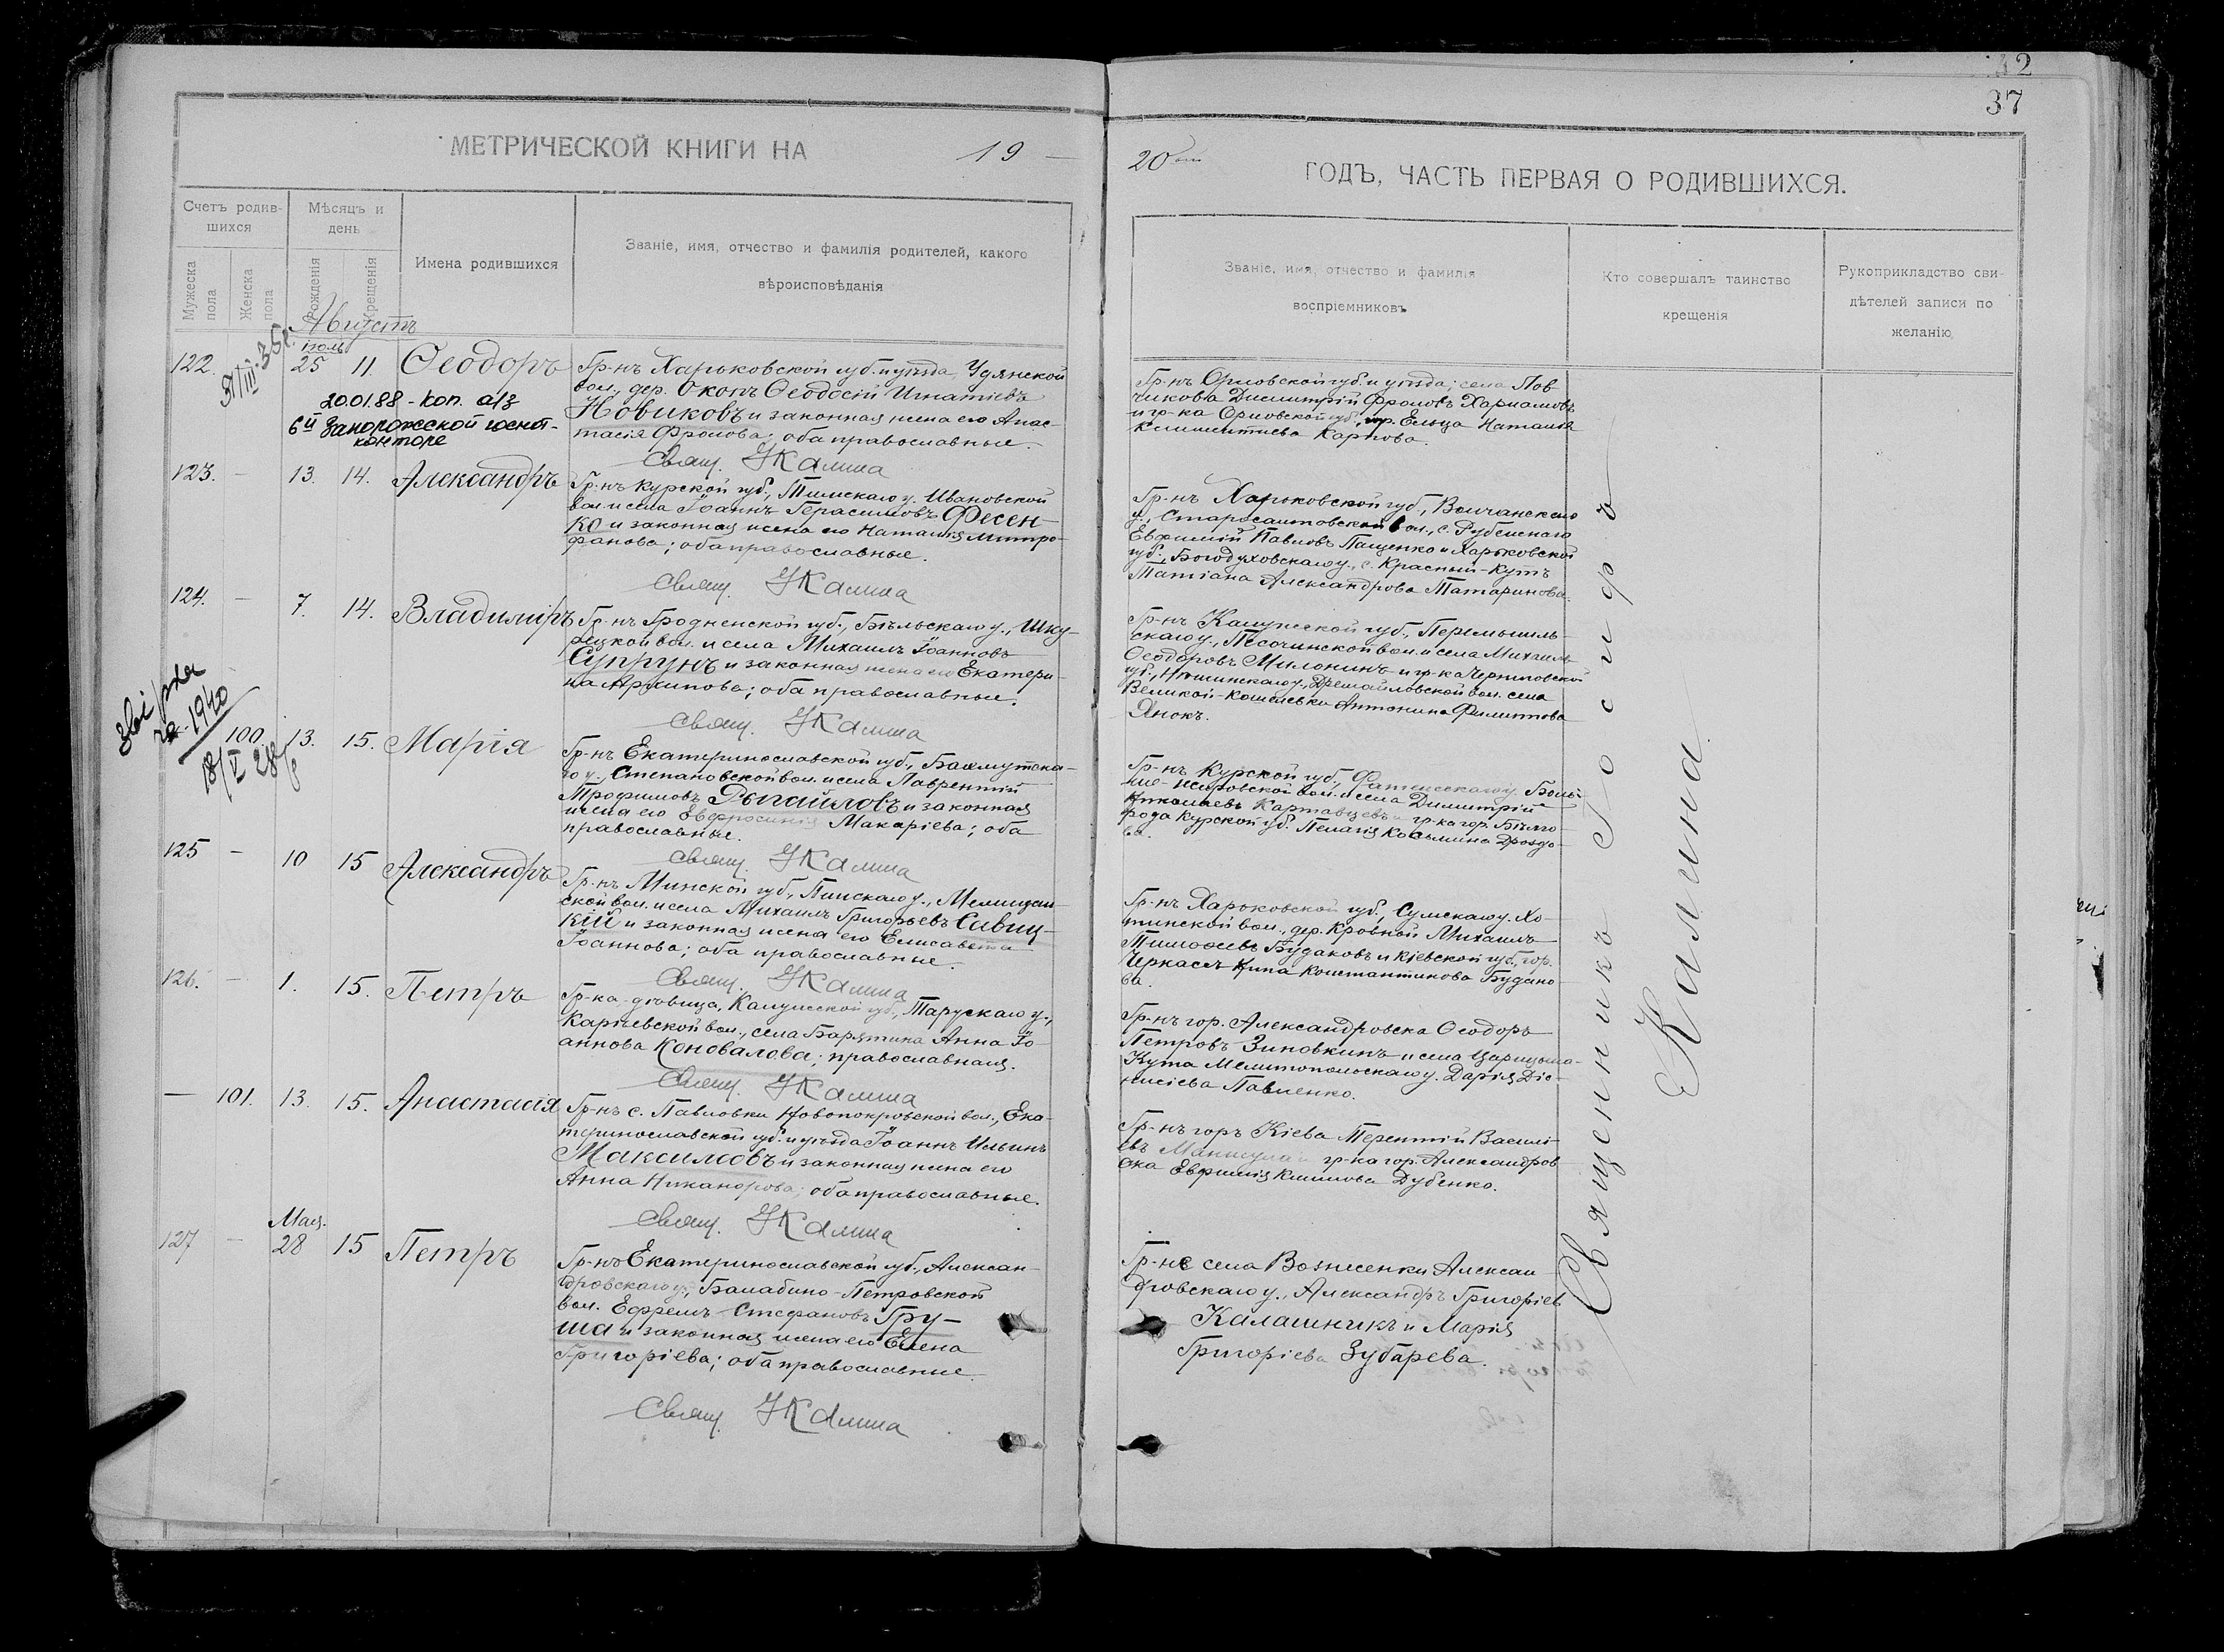 42
37
МЕТРИЧЕСКОЙ КНИГИ НА 19
20 ГОДЪ, ЧАСТЬ ПЕРВАЯ О РОДИВШИХСЯ.
Счетъ родив-
шихся
Мужеска
пола
Женска
пола
Мѣсяцъ и
день
Рожденія
Крещенія
Имена родившихся
Званіе, имя, отчество и фамилія родителей, какого
вѣроисповѣданія
Званіе, имя, отчество и фамилія
воспріемниковъ
Кто совершалъ таинство
крещенія
Рукоприкладство сви-
дѣтелей записи по
желанію
Августъ
122. Іюль 25 11. Ѳеодоръ
20.01.88 - коп. а/з
6й Запорожской госнот-
конторе
Гр-нъ Харьковской губ. и уѣзда, Удянской
вол., дер. Окопъ Ѳеодосій Игнатіевъ
Новиковъ и законная жена его Анас-
тасія Фролова; оба православные.
Свящ. Калина
Гр-нъ Орловской губ. и уѣзда; села Лов-
чикова Димитрій Фроловъ
и гр-ка Орловской губ., гор. Ельца Наталія
Климентиева Карпова.
123. - 13. 14. Александръ
Гр-нъ Курской губ., Тимскаго у. Ивановской
вол. и села Іоаннъ Герасимовъ Фесен-
ко и законная жена его Наталія Митро-
фанова; оба православные.
Свящ. Калина
Гр-нъ Харьковской губ., Волчанскаго
у., Старосалтовской вол., с. Рубежнаго
Евфимій Павловъ Пащенко и Харьковской
губ., Богодуховскаго у., с. Красный-Кутъ
Татіана Александрова Татаринова.
124. - 7. 14. Владиміръ
Гр-нъ Гродненской губ., Бѣльскаго у., Шку-
рецкой вол. и села Михаилъ Іоанновъ
Супрунъ и законная жена его Екатери-
на Архипова; оба православные.
Свящ. Калина
Гр-нъ Калужской губ., Перемышль-
скаго у., Песочинской вол. и села Михаилъ
Ѳеодоровъ Милонинъ и гр-ка Черниговской
губ., Нѣжинскаго у., Дремайловской вол. села
Великой-Кошелевки Антонина Филиппова
Янокъ.
1940
100. 13. 15. Марія
Гр-нъ Екатеринославской губ., Бахмутска-
го у., Степановской вол. и села Лаврентій
Трофимовъ Рыпайловъ и законная
жена его Евфросинія Макаріева; оба
православные.
Свящ. Калина
Гр-нъ Курской губ., Фатежскаго у. Боль-
ше-Жировской вол. и села Димитрій
Николаевъ Картавцевъ и гр-ка гор. Бѣлго-
рода Курской губ. Пелагія Косьмина Дроздо-
ва.
125 - 10 15 Александръ
Гр-нъ Минской губ., Пинскаго у.,
ской вол. и села Михаилъ Григорьевъ Савиц-
кій и законная жена его Елисавета
Іоаннова; оба православные.
Свящ. Калина
Гр-нъ Харьковской губ., Сумскаго у. Хо-
тинской вол., дер. Кровной Михаилъ
Тимофеевъ Будаковъ и Кіевской губ., гор.
Черкассъ Нина Константинова Будако-
ва.
126. - 1. 15. Петръ
Гр-ка дѣвица, Калужской губ., Тарускаго у.,
Каріевской вол., села Барятина Анна Іо-
аннова Коновалова; православная.
Свящ. Калина
Гр-нъ гор. Александровска Ѳеодоръ
Петровъ Зиновкинъ и села Царицына-
Кута Мелитопольскаго у. Дарія Діо-
нисіева Павленко.
— 101. 13. 15. Анастасія
Гр-нъ с. Павловки Новопокровской вол., Ека-
теринославской губ. и уѣзда Іоаннъ Ильинъ
Максимовъ и законная жена его
Анна Никанорова; оба православные.
Свящ. Калина
Гр-нъ горъ Кіева Терентій Василі-
евъ и гр-ка гор. Александров-
ска Евфимія Климова Дубенко.
127 - Мая. 28 15 Петръ
Гр-нъ Екатеринославской губ., Алексан-
дровскаго у., Балабино-Петровской
вол. Ефремъ Стефановъ Гру-
ша и законная жена его Елена
Григоріева; оба православные.
Свящ. Калина
Гр-не села Вознесенки Алексан-
дровскаго у., Александръ Григоріев
Калашникъ и Марія
Григоріева Зубарева.
Священникъ Іосифъ
Калина